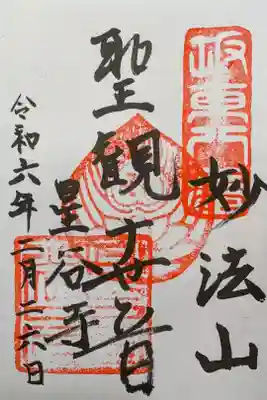 妙法山
聖観世音
星谷寺
令和六年二月二六日